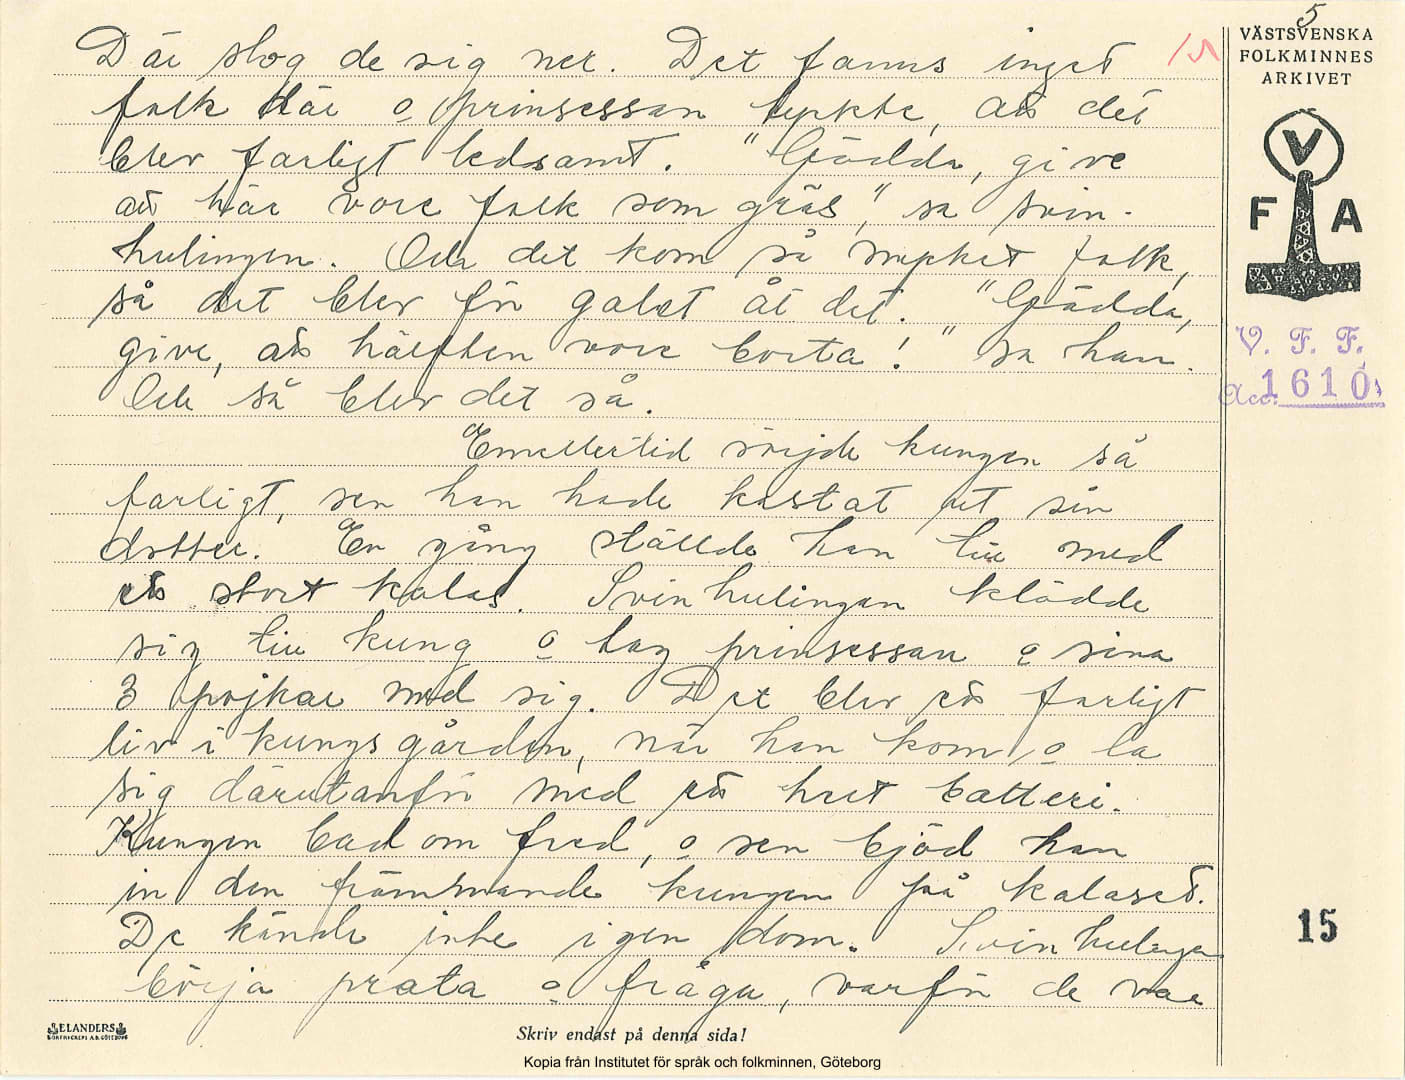 5
VÄSTSVENSKA
FOLKMINNES
ARKIVET
V
F A
V. F. F.
Acc. 1610.
15
15
Där slog de sig ner. Det fanns inget
folk där o prinsessan tyckte, att det
blev farligt ledsamt. "Gädda, give
att här vore folk som gräs," sa svin-
hulingen. Och det kom så mycket folk,
så det blev för galet åt det. "Gädda,
give, att hälften vore borta!" sa han.
Och så blev det så.
Emellertid sörjde kungen så
farligt, sen han hade kastat ut sin
dotter. En gång ställde han till med
ett stort kalas. Svinhulingen klädde
sig till kung o tog prinsessan o sina
3 pojkar med sig. Det blev ett farligt
liv i kungsgården, när han kom o la
sig därutanför med ett helt batteri.
Kungen bad om fred, o sen bjöd han
in den främmande kungen på kalaset.
De kände inte igen dom. Svinhulingen
börja prata o fråga, varför de var
ELANDERS
Skriv endast på denna sida!
Kopia från Institutet för språk och folkminnen, Göteborg